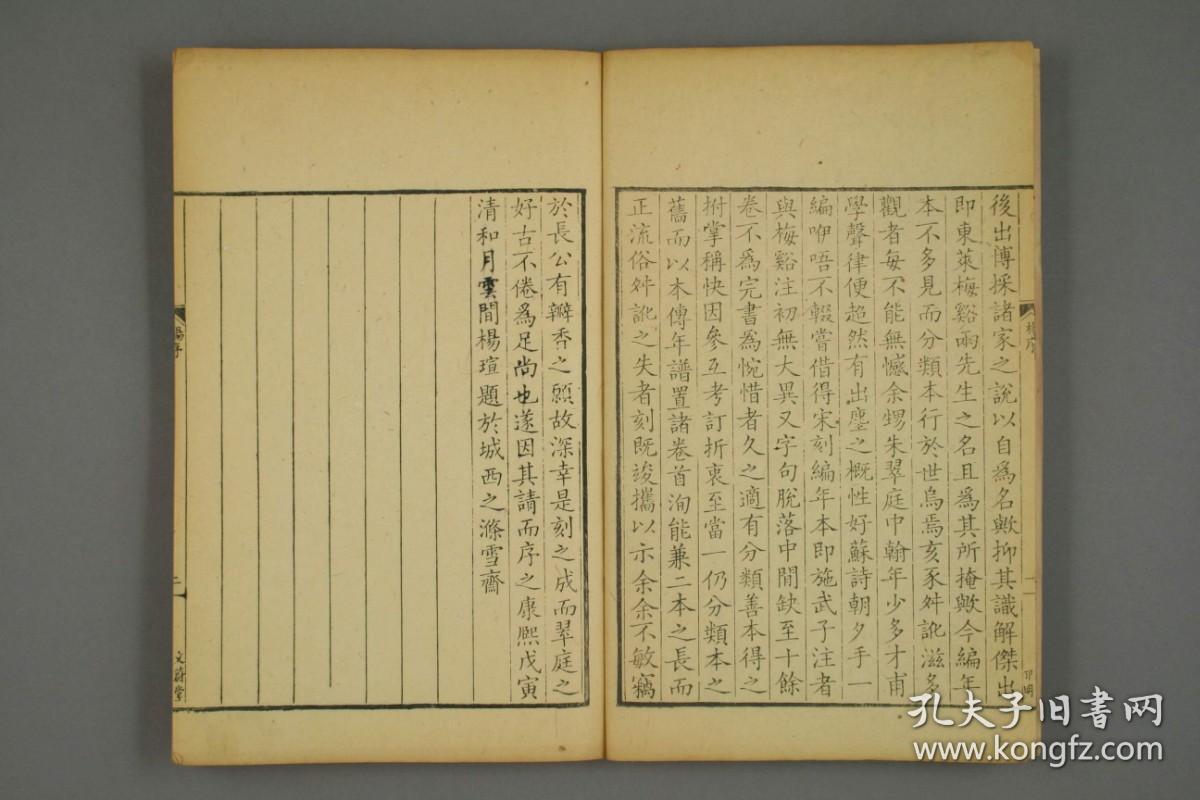 後出博採諸家之說以自爲名歟抑其識解傑出
即東萊梅谿兩先生之名且爲其所掩歟今編年
本不多見而分類本行於世烏焉亥豕舛訛滋多
觀者每不能無憾余甥朱翠庭中翰年少多才甫
學聲律便超然有出塵之概性好蘇詩朝夕手一
編咿唔不輟嘗借得宋刻編年本即施武子注者
與梅谿注初無大異又字句脫落中間缺至十餘
卷不爲完書爲惋惜者久之適有分類善本得之
拊掌稱快因參互考訂折衷至當一仍分類本之
舊而以本傳年譜置諸卷首洵能兼二本之長而
正流俗舛訛之失者刻既竣攜以示余余不敏竊
於長公有瓣香之願故深幸是刻之成而翠庭之
好古不倦爲足尚也遂因其請而序之康熙戊寅
清和月雲間楊瑄題於城西之滌雪齋
楊序
二
文蔚堂
孔夫子旧书网
www.kongfz.com